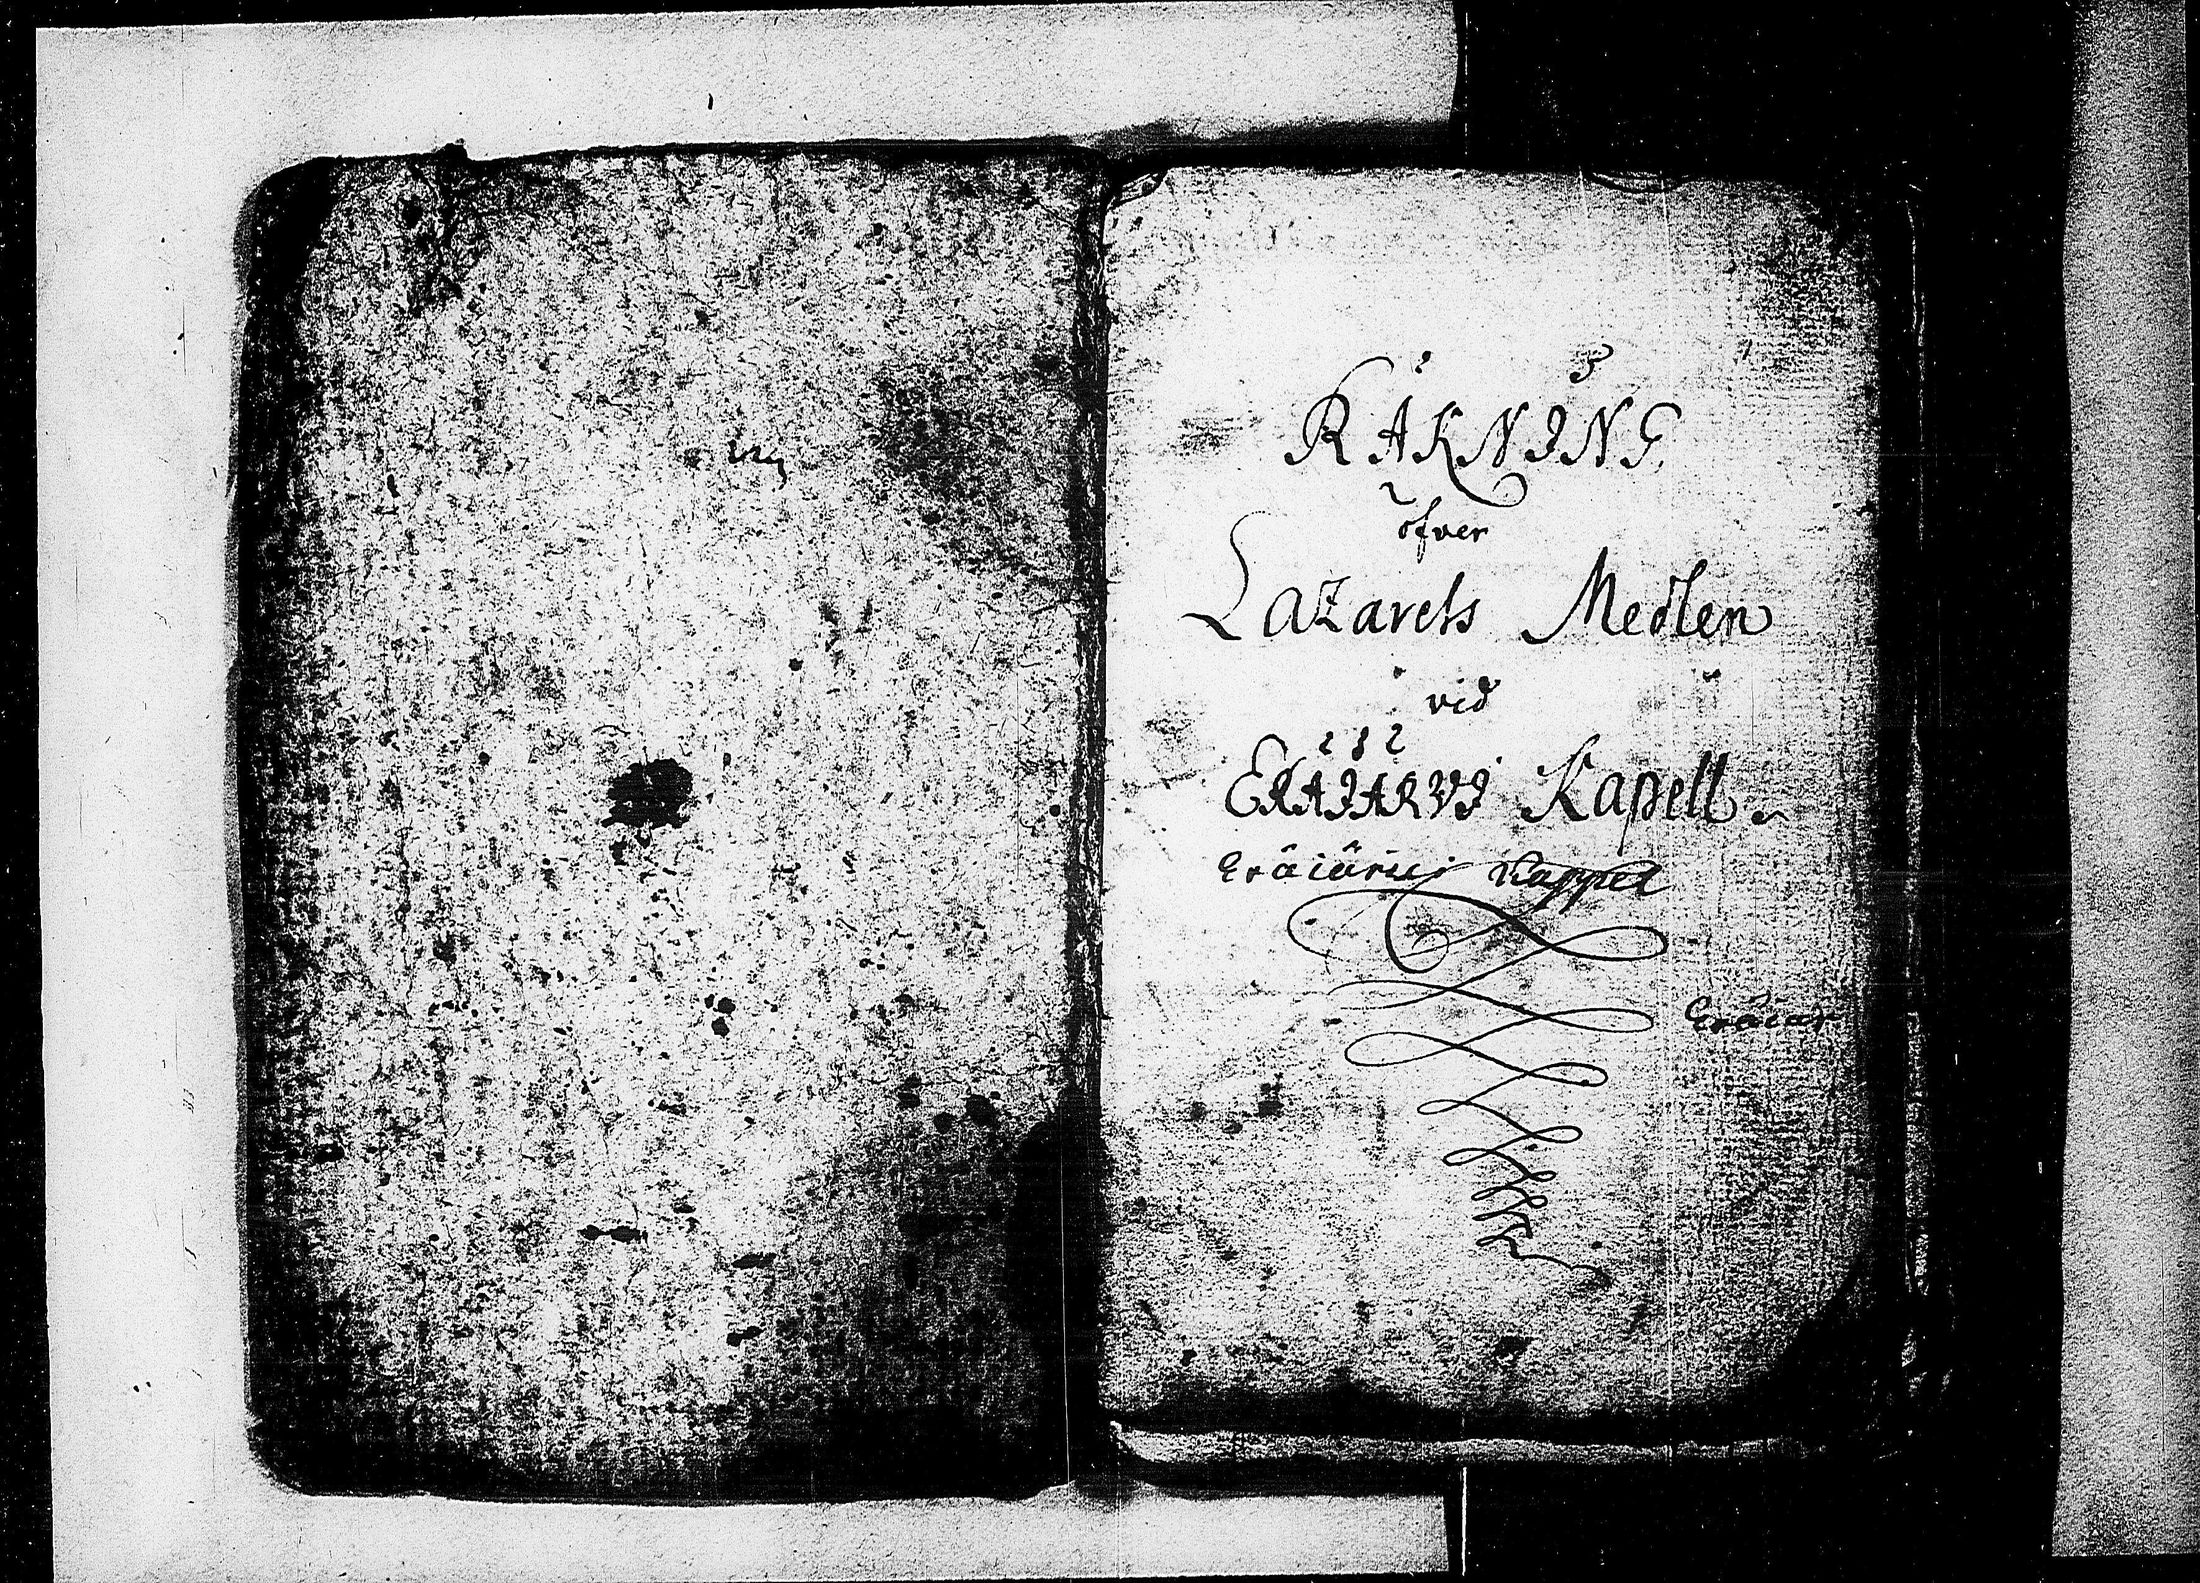 RÄKNING
öfver
Lazarets Medlen
vid
ERÄJÄRVI Kapell
Eräiärui Kappel
Eräiär